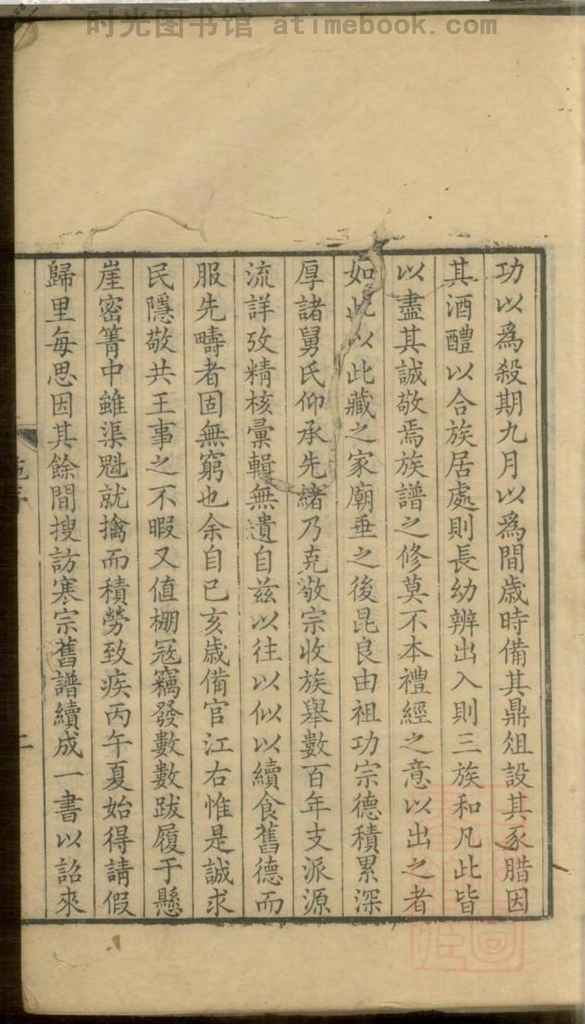 时光图书馆 atimebook.com
功以為殺期九月以為間歲時備其鼎俎設其豕腊因
其酒醴以合族居處則長幼辨出入則三族和凡此皆
以盡其誠敬焉族譜之修莫不本禮經之意以出之者
如此以此藏之家廟垂之後昆良由祖功宗德積累深
厚諸舅氏仰承先緒乃克敬宗收族舉數百年支派源
流詳攷精核彙輯無遺自茲以往以似以續食舊德而
服先疇者固無窮也余自己亥歲備官江右惟是誠求
民隱敬共王事之不暇又值棚冦竊發數數跋履于懸
崖密箐中雖渠魁就擒而積勞致疾丙午夏始得請假
歸里每思因其餘間搜訪寒宗舊譜續成一書以詔來